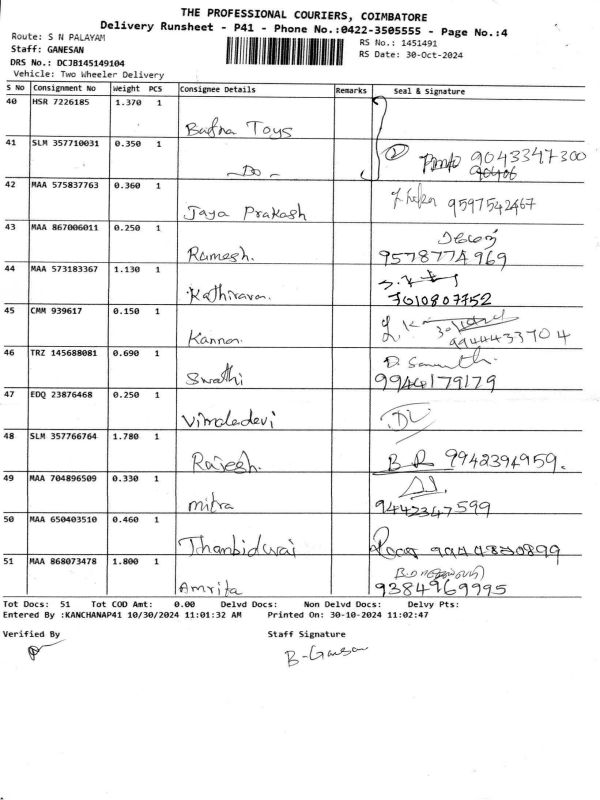 THE PROFESSIONAL COURIERS, COIMBATORE
Delivery Runsheet - P41 - Phone No.:0422-3505555 - Page No.:4
Route: S N PALAYAM
RS No.: 1451491
Staff: GANESAN
RS Date: 30-Oct-2024
DRS No.: DCJB145149104
Vehicle: Two Wheeler Delivery
S No Consignment No Weight PCS Consignee Details Remarks Seal & Signature
40 HSR 7226185 1.370 1
Bafna Toys
41 SLM 357710031 0.350 1
-Do- 9043347300
42 MAA 575837763 0.360 1
Jaya Prakash 9597542467
43 MAA 867006011 0.250 1
Ramesh. 9578774969
44 MAA 573183367 1.130 1
Kathiravan. 7010807752
45 CMM 939617 0.150 1
Kannan. 9944433704
46 TRZ 145688081 0.690 1
Swathi 9944179179
47 EDQ 23876468 0.250 1
Vimaladevi
48 SLM 357766764 1.780 1
Rajesh. B R 9942394959.
49 MAA 704896509 0.330 1
mitra 9442347599
50 MAA 650403510 0.460 1
Thambidurai
51 MAA 868073478 1.800 1
Amrita 9384969995
Tot Docs: 51 Tot COD Amt: 0.00 Delvd Docs: Non Delvd Docs: Delvy Pts:
Entered By :KANCHANAP41 10/30/2024 11:01:32 AM Printed On: 30-10-2024 11:02:47
Verified By Staff Signature
B-Ganesan